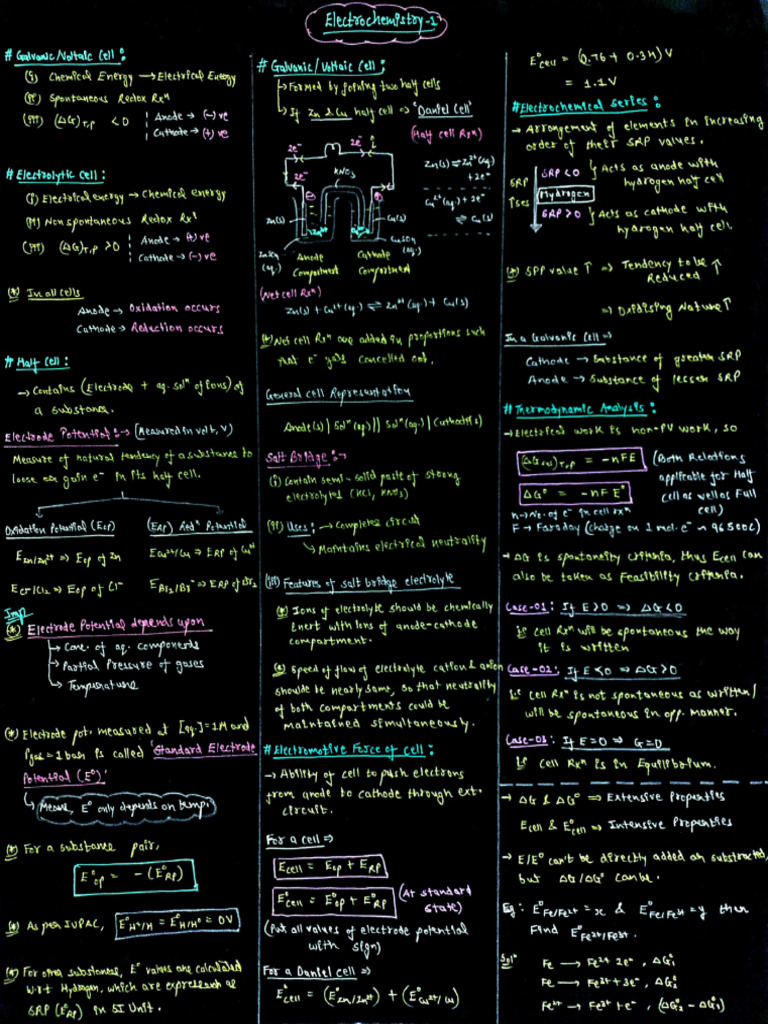 Electrochemistry-1
# Galvanic/Voltaic Cell :
(i) Chemical Energy → Electrical Energy
(ii) Spontaneous Redox Rxⁿ
(iii) (ΔG)T,P < 0 Anode → (-)ve
Cathode → (+)ve
# Electrolytic Cell :
(i) Electrical energy → Chemical energy
(ii) Non spontaneous Redox Rxⁿ
(iii) (ΔG)T,P > 0 Anode → (+)ve
Cathode → (-)ve
(*) In all cells
Anode → Oxidation occurs
Cathode → Reduction occurs
# Half Cell :
→ Contains (Electrode + aq. solⁿ of ions) of
a substance.
Electrode Potential :→ (Measured in volt, V)
Measure of natural tendency of a substance to
loose or gain e⁻ in its half cell.
Oxidation Potential (EOP) (ERP) Redⁿ Potential
EZn/Zn²⁺ ⇒ EOP of Zn ECu²⁺/Cu ⇒ ERP of Cu²⁺
ECl⁻/Cl₂ ⇒ EOP of Cl⁻ EBr₂/Br⁻ ⇒ ERP of Br₂
Imp
(*) Electrode Potential depends upon
→ Conc. of aq. components
→ Partial Pressure of gases
→ Temperature
(*) Electrode pot. measured at [aq.]=1M and
Pgas = 1 bar is called 'Standard Electrode
Potential (E°)'
Means, E° only depends on temp.
(*) For a substance pair,
E°OP = -(E°RP)
(*) As per IUPAC, E°H⁺/H = E°H/H⁺ = 0V
(*) For other substances, E° values are calculated
w.r.t Hydrogen, which are expressed as
SRP (E°RP) in SI Unit.
# Galvanic/Voltaic Cell :
→ Formed by joining two half cells
→ If Zn & Cu half cell ⇒ 'Daniel Cell'
(Half cell Rxⁿ)
Zn(s) ⇌ Zn²⁺(aq.)
+ 2e⁻
Cu²⁺(aq.) + 2e⁻
⇌ Cu(s)
2e⁻ 2e⁻ i
2e⁻ KNO₃
Zn(s) Cu(s)
ZnSO₄ CuSO₄
(aq.) Anode Cathode (aq.)
Compartment Compartment
(Net cell Rxⁿ)
Zn(s) + Cu²⁺(aq.) ⇌ Zn²⁺(aq.) + Cu(s)
(*) Net cell Rxⁿ are added in proportions such
that e⁻ gets cancelled out.
General cell Representation
Anode(s) | Solⁿ(aq.) || Solⁿ(aq.) | Cathode(s)
Salt Bridge :→
(i) Contain semi-solid paste of strong
electrolytes (KCl, KNO₃)
(ii) Uses : → Completes circuit
→ Maintains electrical neutrality
(iii) Features of salt bridge electrolyte
(*) Ions of electrolyte should be chemically
inert with ions of anode-cathode
compartment.
(*) Speed of flow of electrolyte cation & anion
should be nearly same, so that neutrality
of both compartments could be
maintained simultaneously.
# Electromotive Force of cell :
→ Ability of cell to push electrons
from anode to cathode through ext.
circuit.
For a cell ⇒
Ecell = EOP + ERP
E°cell = E°OP + E°RP (At standard
state)
(Put all values of electrode potential
with sign)
For a Daniel cell ⇒
E°cell = (E°Zn/Zn²⁺) + (E°Cu²⁺/Cu)
E°cell = (0.76 + 0.34) V
= 1.1 V
# Electrochemical Series :
→ Arrangement of elements in increasing
order of their SRP values.
SRP ↑ses
SRP < 0 } Acts as anode with
hydrogen half cell
Hydrogen
SRP > 0 } Acts as cathode with
hydrogen half cell.
(*) SPP value ↑ ⇒ Tendency to be ↑
Reduced
⇒ Oxidising Nature ↑
In a Galvanic Cell →
Cathode → Substance of greater SRP
Anode → Substance of lesser SRP
# Thermodynamic Analysis :
→ Electrical work is non-PV work, so
(ΔGcell)T,P = -nFE (Both Relations
applicable for Half
ΔG° = -nFE° cell as well as Full
cell)
n → No. of e⁻ in cell rxⁿ
F → Faraday (charge on 1 mol. e⁻ ≈ 96500C)
→ ΔG is spontaneity criteria, thus Ecell can
also be taken as feasibility criteria.
Case-01 : If E > 0 ⇒ ΔG < 0
∴ Cell Rxⁿ will be spontaneous the way
it is written
Case-02 : If E < 0 ⇒ ΔG > 0
∴ Cell Rxⁿ is not spontaneous as written/
will be spontaneous in opp. manner.
Case-03 : If E = 0 ⇒ G = 0
∴ Cell Rxⁿ is in Equilibrium.
→ ΔG & ΔG° ⇒ Extensive Properties
Ecell & E°cell ⇒ Intensive Properties
→ E/E° can't be directly added or substracted,
but ΔG/ΔG° can be.
Eg : E°Fe/Fe²⁺ = x & E°Fe/Fe³⁺ = y then
Find E°Fe²⁺/Fe³⁺.
Solⁿ Fe → Fe²⁺ 2e⁻, ΔG°₁
Fe → Fe³⁺ + 3e⁻, ΔG°₂
Fe²⁺ → Fe³⁺ + e⁻, (ΔG°₂ - ΔG°₁)